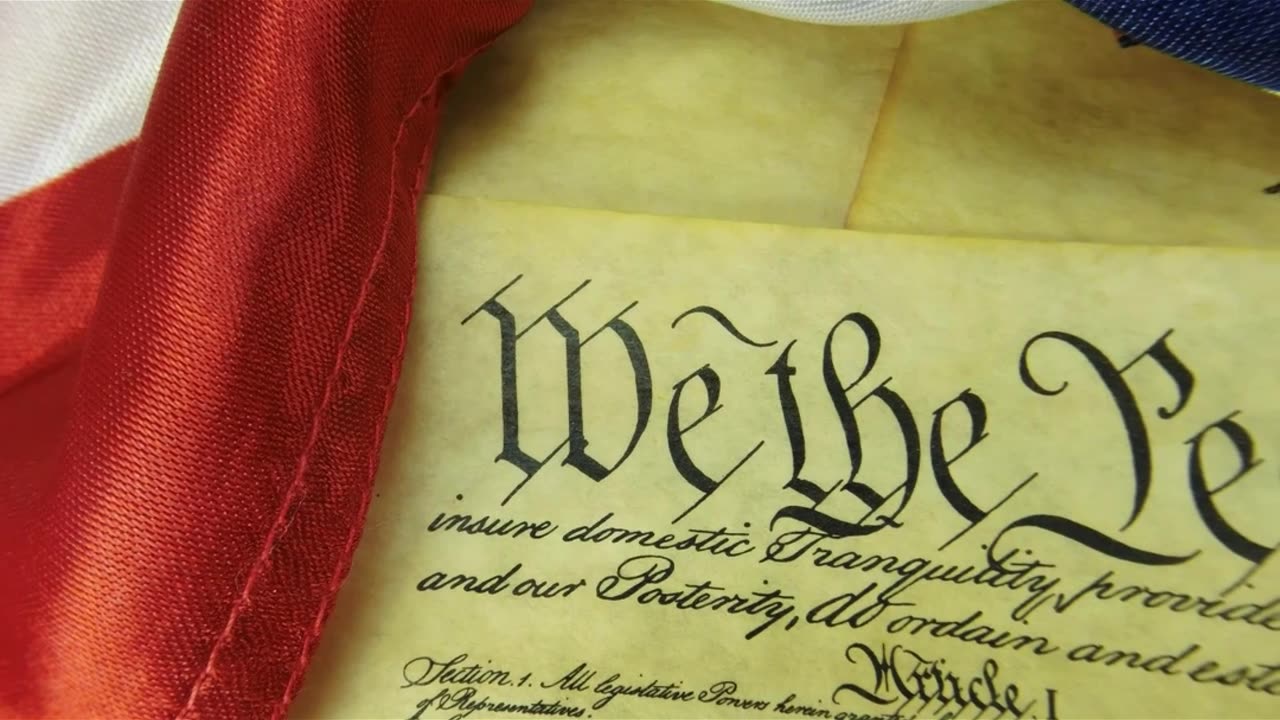 We the Pe
insure domestic Tranquility, provide
and our Posterity, do ordain and esta
Article. I
Section. 1. All legislative Powers herein grante
of Representatives.